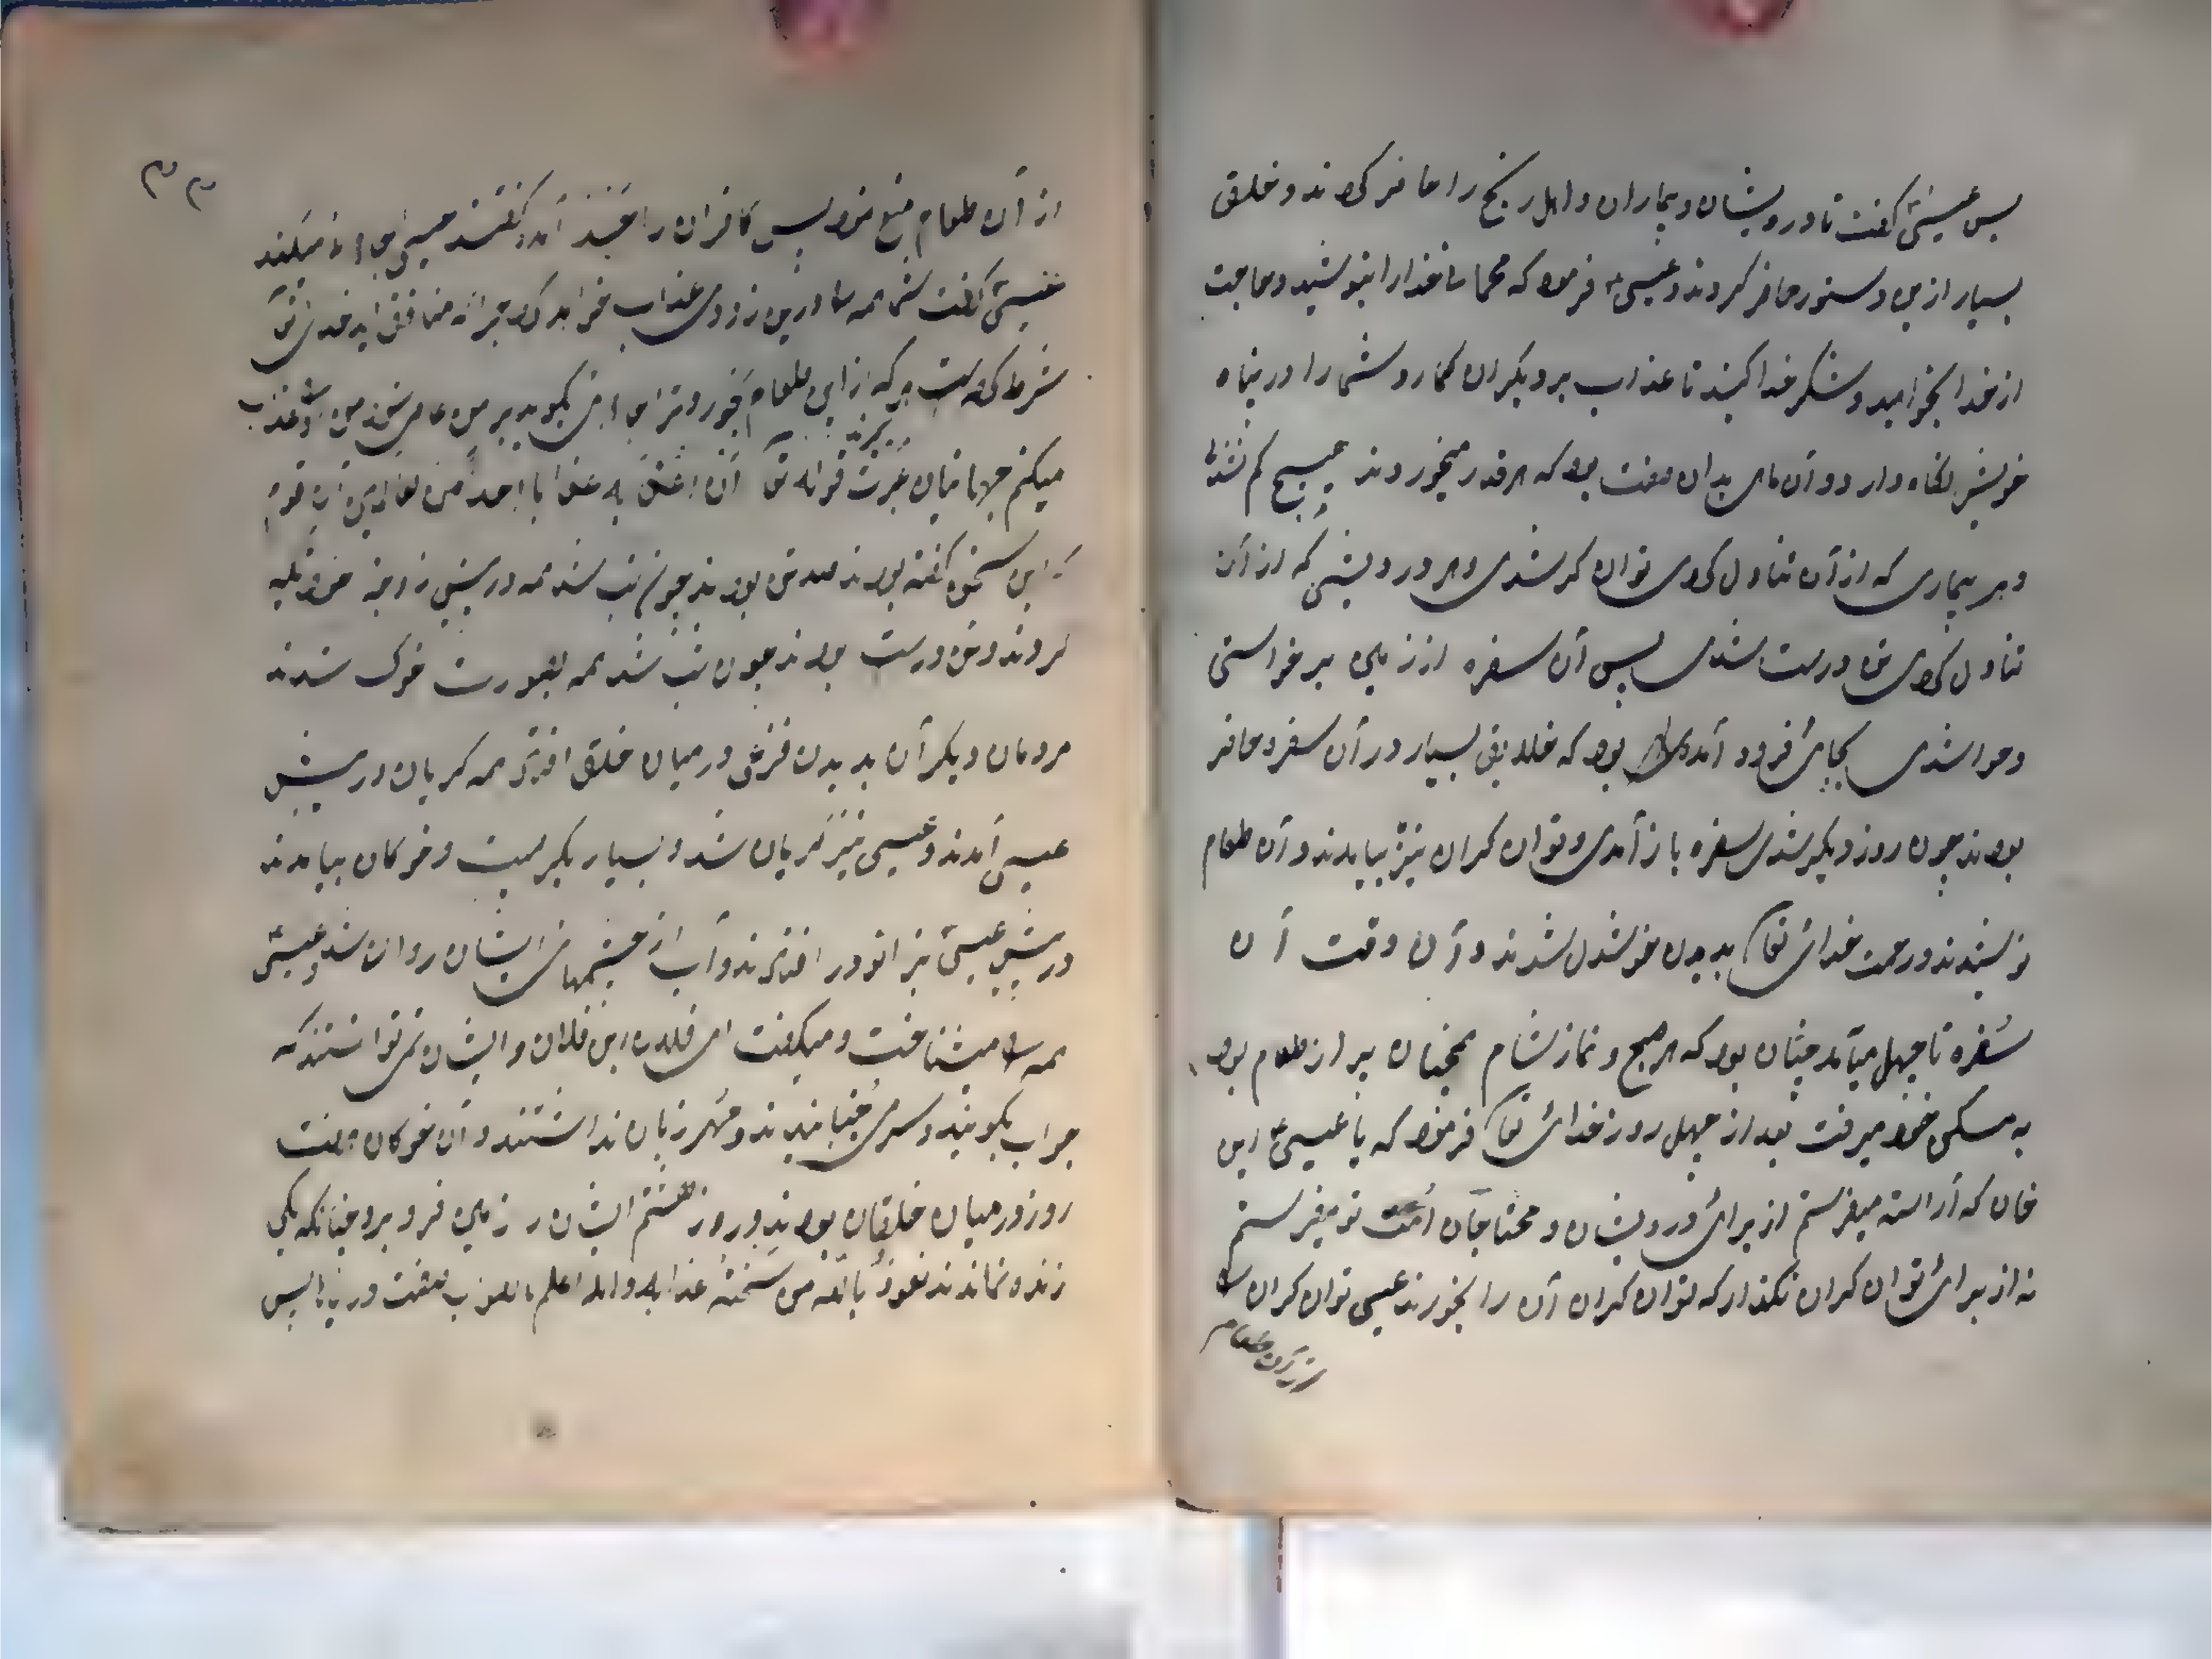 پس عیسیٰ گفت تا درویشان و بیماران و اهل رنج را حاضر کردند و خلق
بسیار ازین دستور حاضر کردند و عیسیٰ فرمود که خدارا بنوشید و حاجت
از خدا بخواهید و شکر خدا کنید تا عذاب بر دیگران کمارد و شما را در پناه
خویش نگاه دارد و آن ماهی بدان صفت بود که هر قدر میخوردند هیچ کم نشد
و هر بیماری که از آن تناول کردی توان گر شدی و هر درویشی که از آن
تناول کردی درست شدی پس آن سفره از زمین برخواستی
و هوا شدی بجای فرود آمدی بود که خلایق بسیار در آن سفره حاضر
بودند چون روز دیگر شدی سفره باز آمدی و توان گران نیز بیایدند و آن طعام
نوشیدند و رحمت خدای تعا بدیدن خوشدل شدند و آن وقت آن
سفره تا چهل میآمد چنان بود که هر صبح و نماز شام همچنان پر از طعام بود
به مسکن خود میرفت بعد از چهل روز خدای تعا فرمود که یا عیسیٰ این
خان که آراسته میفرستم از برای درویشان و محتاجان اُمت تو میفرستم
نه از برای توان گران نگذار که توان گران آن را بخورند عیسی توان گران را
از آن طعام
٣٣
از آن طعام منع نمود پس کافران را آمد و گفتند عیسی میکند
عیسیٰ گفت شما همه را درین زودی عذاب خواهد کرد چرا که منافق اید خدای تعا
شرط کرده است هر که از این طعام بخورد و ترا من عذاب
میکنم جهانیان عبرت گیرند قوله تعا انی اعذبه عذابا لا اعذبه احدا من العالمین این قوم
که این سخن گفته بودند بودند چون شب شد همه در پیش زوجه خود تکیه
کردند و تن درست بودند چون شب شد همه بصورت خوک شدند
مردمان دیگر آن بدیدن در میان خلق افتاد همه گریان در پیش
عیسی آمدند و عیسی نیز گریان شد و بسیار بگریست و خوکان بیامدند
در پیش عیسیٰ بزانو در افتادند و آب از چشمهای ایشان روان شد و عیسیٰ
همه را میشناخت و میگفت ای فلان ابن فلان و ایشان نمی توانستند که
جواب بگویند و سر می جنبانیدند و زبان نداشتند و آن خوکان هفت
روز در میان خلقان بودند و روز هشتم ایشان در زمین فرو برد چنانکه یکی
زنده نماندند نعوذ بالله من عذابه والله اعلم